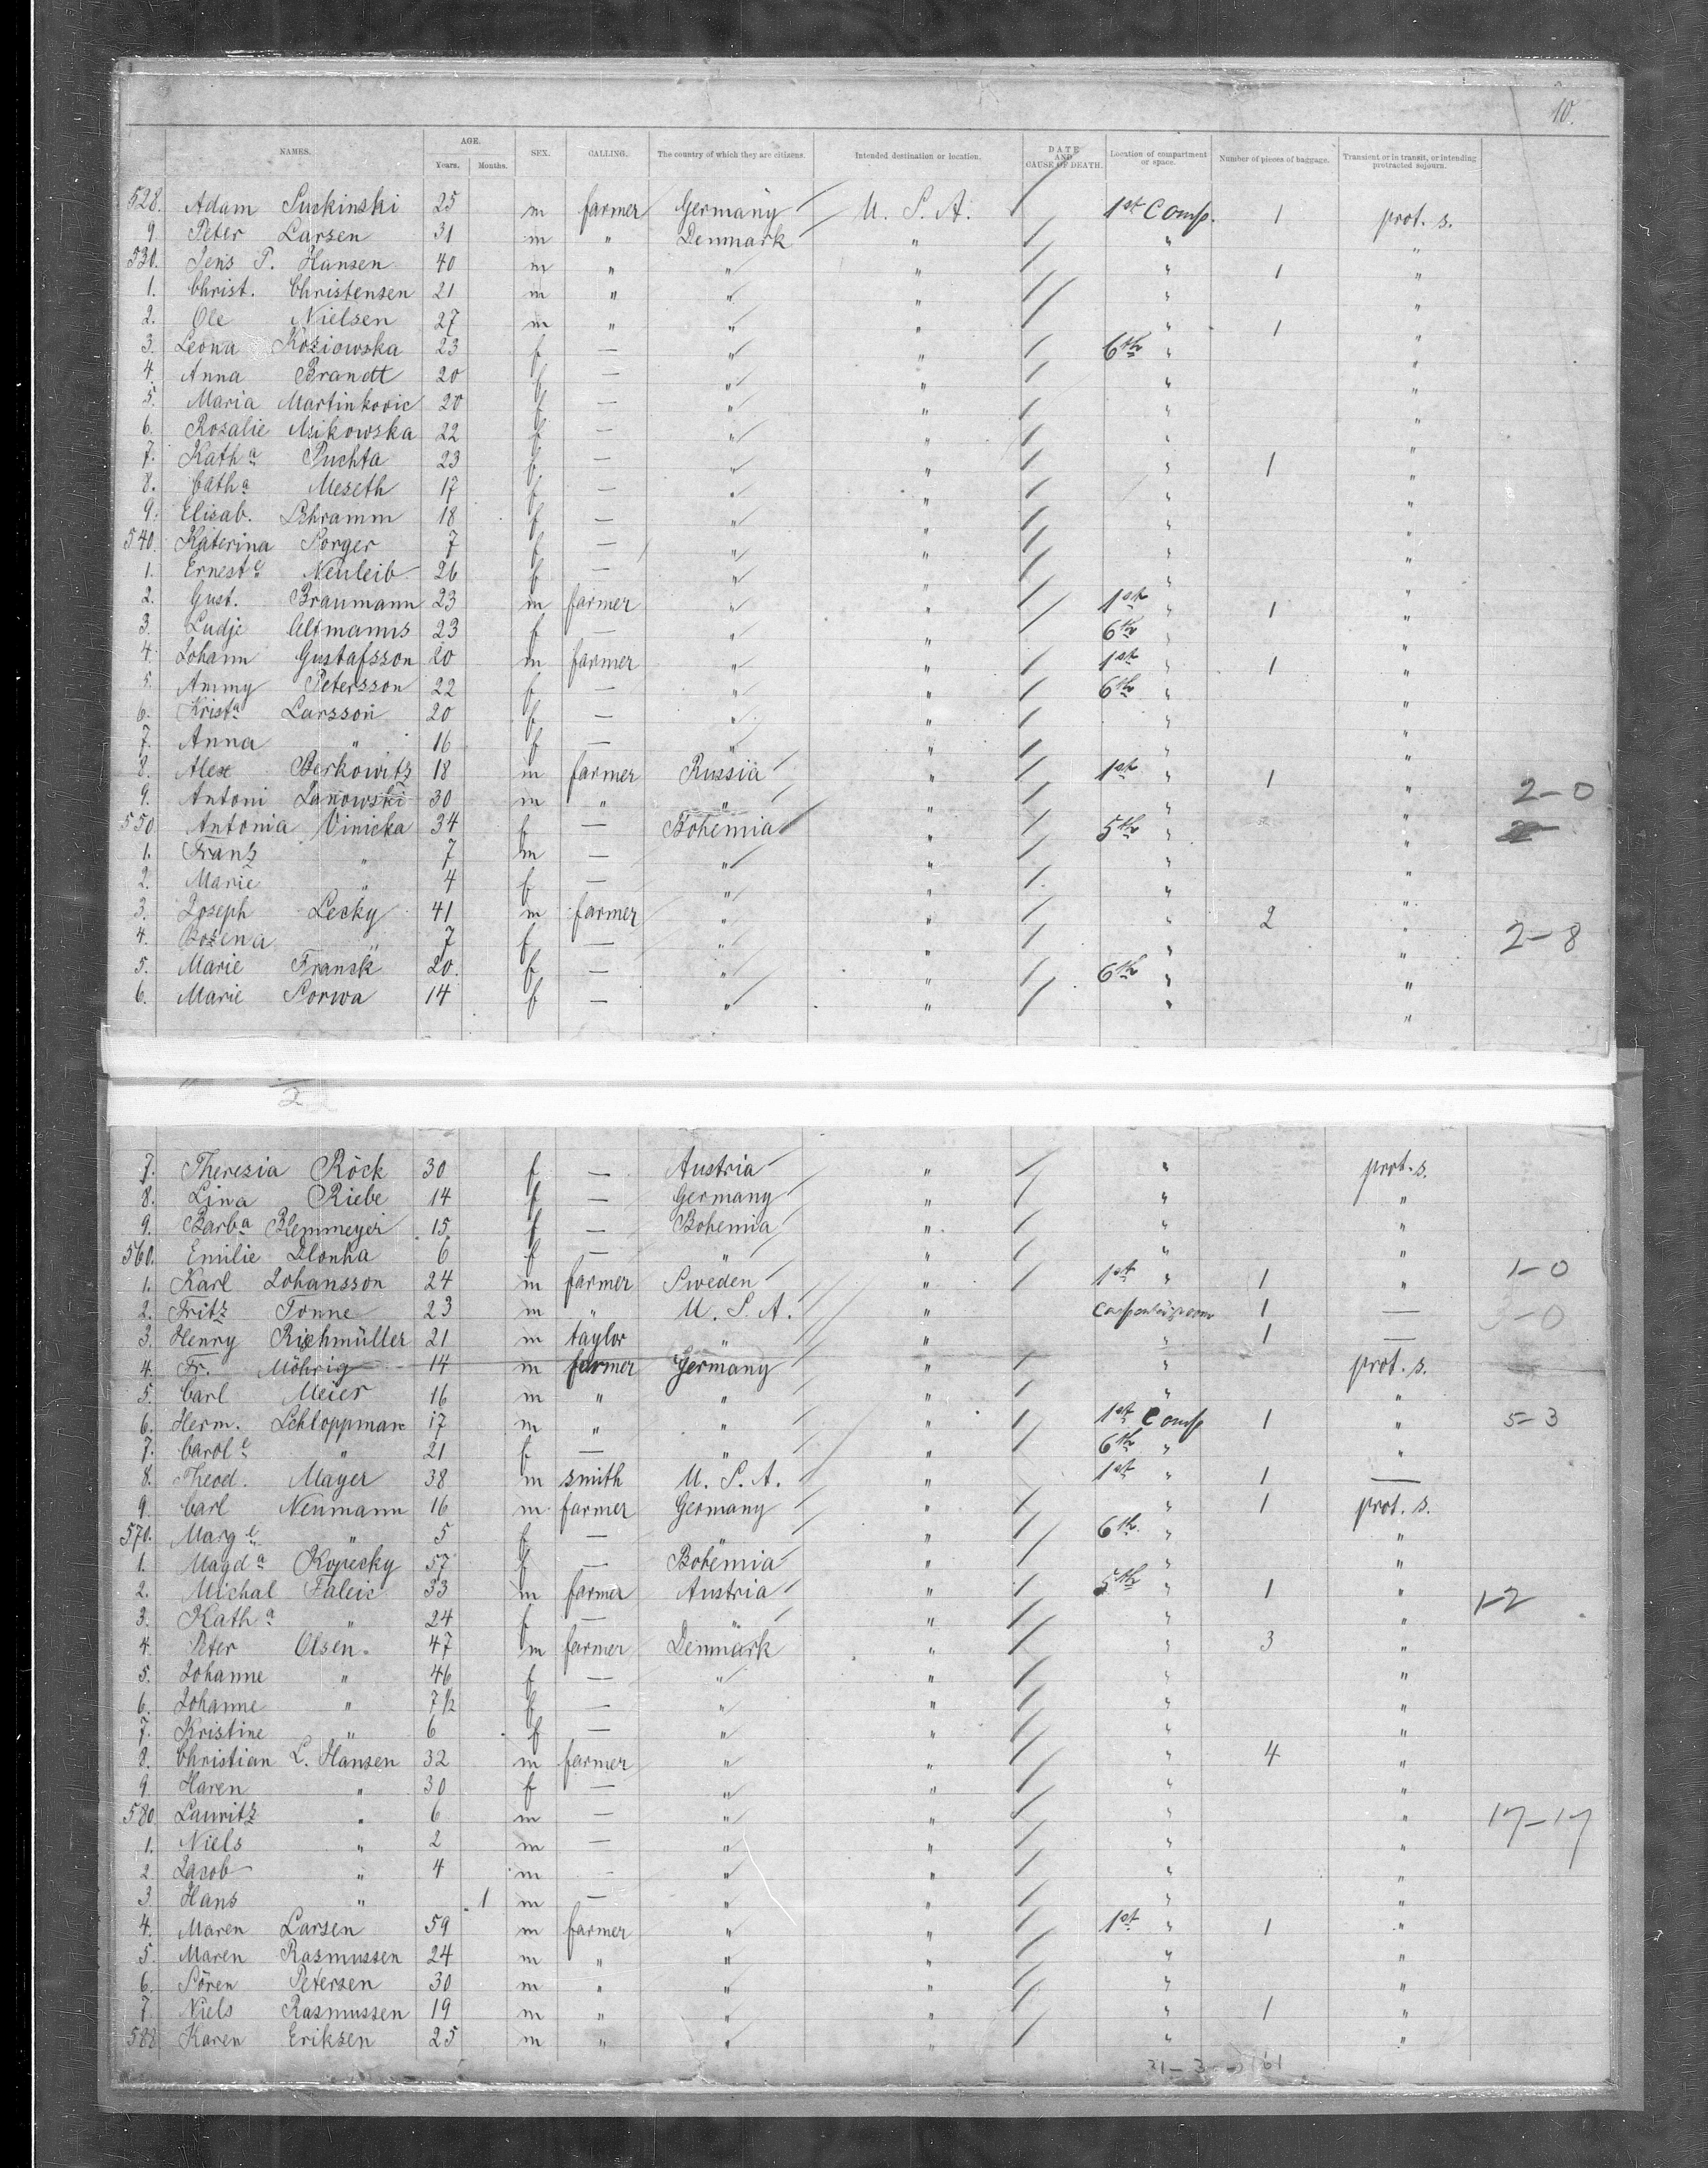 10.
NAMES. AGE. Years. Months. SEX. CALLING. The country of which they are citizens. Intended destination or location. DATE AND CAUSE OF DEATH. Location of compartment or space. Number of pieces of baggage. Transient or in transit, or intending protracted sojourn.
528. Adam Suckinski 25 m farmer Germany U. S. A. 1st Comp. 1 prot. s.
9. Peter Larsen 31 m " Denmark " " "
530. Jens P. Hansen 40 m " " " " 1 "
1. Christ. Christensen 21 m " " " " "
2. Ole Nielsen 27 m " " " " 1 "
3. Leona Koziowska 23 f — " " 6th " "
4. Anna Brandt 20 f — " " " "
5. Maria Martinkovic 20 f — " " " "
6. Rosalie 22 f — " " " "
7. Katha Puchta 23 f — " " " 1 "
8. Catha Meseth 17 f — " " " "
9. Elisab. Schramm 18 f — " " " "
540. Katerina Sorger 7 f — " " " "
1. Erneste Neuleib 26 f — " " " "
2. Gust. Braumann 23 m farmer " " 1st " 1 "
3. Ludje Altmanns 23 f — " " 6th " "
4. Johann Gustafsson 20 m farmer " " 1st " 1 "
5. Ammy Petersson 22 f — " " 6th " "
6. Krista Larsson 20 f — " " " "
7. Anna " 16 f — " " " "
8. Alex Berkowitz 18 m farmer Russia " 1st " 1 "
9. Antoni Janowski 30 m " " " " " 2-0
550 Antonia Vinicka 34 f — Bohemia " 5th " "
1. Franz " 7 m — " " " "
2. Marie " 4 f — " " " "
3. Joseph Lecky 41 m farmer " " " 2 "
4. Bozena " 7 f — " " " " 2-8
5. Marie Fransk 20. f — " " 6th " "
6. Marie Sorwa 14 f — " " " "
2
7. Theresia Röck 30 f — Austria " " prot. s.
8. Lina Riebe 14 f — Germany " " "
9. Barba Blemmeyer 15 f — Bohemia " " "
560. Emilie Dlonha 6 f — " " " "
1. Karl Johansson 24 m farmer Sweden " 1st " 1 " 1-0
2. Fritz Tonne 23 m " U. S. A. " 1 — 3-0
3. Henry Richmüller 21 m taylor " " " 1 —
4. Fr. Möhrig 14 m farmer Germany " " prot. s.
5. Carl Meier 16 m " " " " "
6. Herm. Schloppman 17 m " " " 1st Comp 1 " 5-3
7. Carole " 21 f — " " 6th " "
8. Theod. Mayer 38 m smith U. S. A. " 1st " 1 —
9 Carl Neumann 16 m farmer Germany " " 1 prot. s.
570. Marge " 5 f — " " 6th " "
1. Magda Kopecky 57 f — Bohemia " " "
2. Michal Faleic 33 m farmer Austria " 5th " 1 " 1-2
3. Katha " 24 f — " " " "
4 Peter Olsen 47 m farmer Denmark " " 3 "
5. Johanne " 46 f — " " " "
6. Johanne " 7 1/2 f — " " " "
7. Kristine " 6 f — " " " "
8. Christian L. Hansen 32 m farmer " " " 4 "
9 Haren " 30 f — " " " "
580 Lauritz " 6 m — " " " " 17-17
1. Niels " 2 m — " " " "
2 Jacob " 4 m — " " " "
3 Hans " 1 m — " " " "
4. Maren Larsen 59 m farmer " " 1st " 1 "
5 Maren Rasmussen 24 m " " " " "
6. Sören Petersen 30 m " " " " "
7 Niels Rasmussen 19 m " " " " 1 "
588 Karen Eriksen 25 m " " " " "